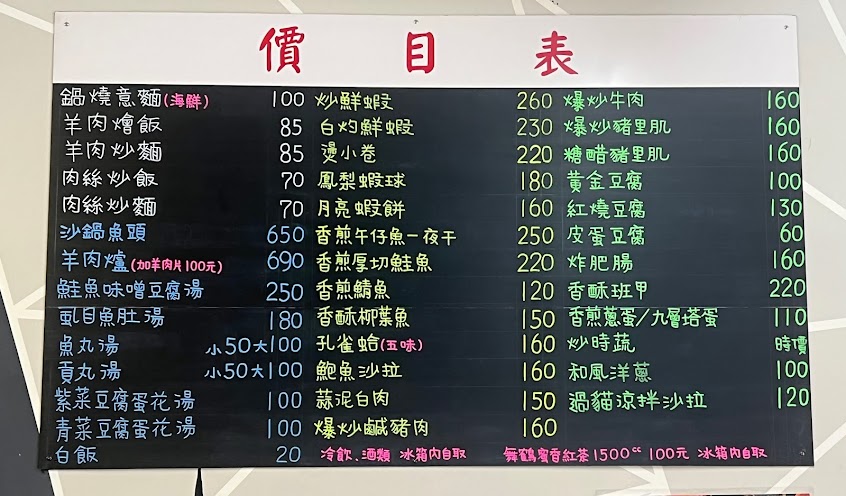 價目表
鍋燒意麵(海鮮) 100
羊肉燴飯 85
羊肉炒麵 85
肉絲炒飯 70
肉絲炒麵 70
沙鍋魚頭 650
羊肉爐(加羊肉片100元) 690
鮭魚味噌豆腐湯 250
虱目魚肚湯 180
魚丸湯 小50大100
貢丸湯 小50大100
紫菜豆腐蛋花湯 100
青菜豆腐蛋花湯 100
白飯 20
炒鮮蝦 260
白灼鮮蝦 230
燙小卷 220
鳳梨蝦球 180
月亮蝦餅 160
香煎午仔魚一夜干 250
香煎厚切鮭魚 220
香煎鯖魚 120
香酥柳葉魚 150
孔雀蛤(五味) 160
鮑魚沙拉 160
蒜泥白肉 150
爆炒鹹豬肉 160
冷飲、酒類 冰箱內自取
爆炒牛肉 160
爆炒豬里肌 160
糖醋豬里肌 160
黃金豆腐 100
紅燒豆腐 130
皮蛋豆腐 60
炸肥腸 160
香酥班甲 220
香煎蔥蛋/九層塔蛋 110
炒時蔬 時價
和風洋蔥 100
過貓涼拌沙拉 120
舞鶴蜜香紅茶1500cc 100元 冰箱內自取